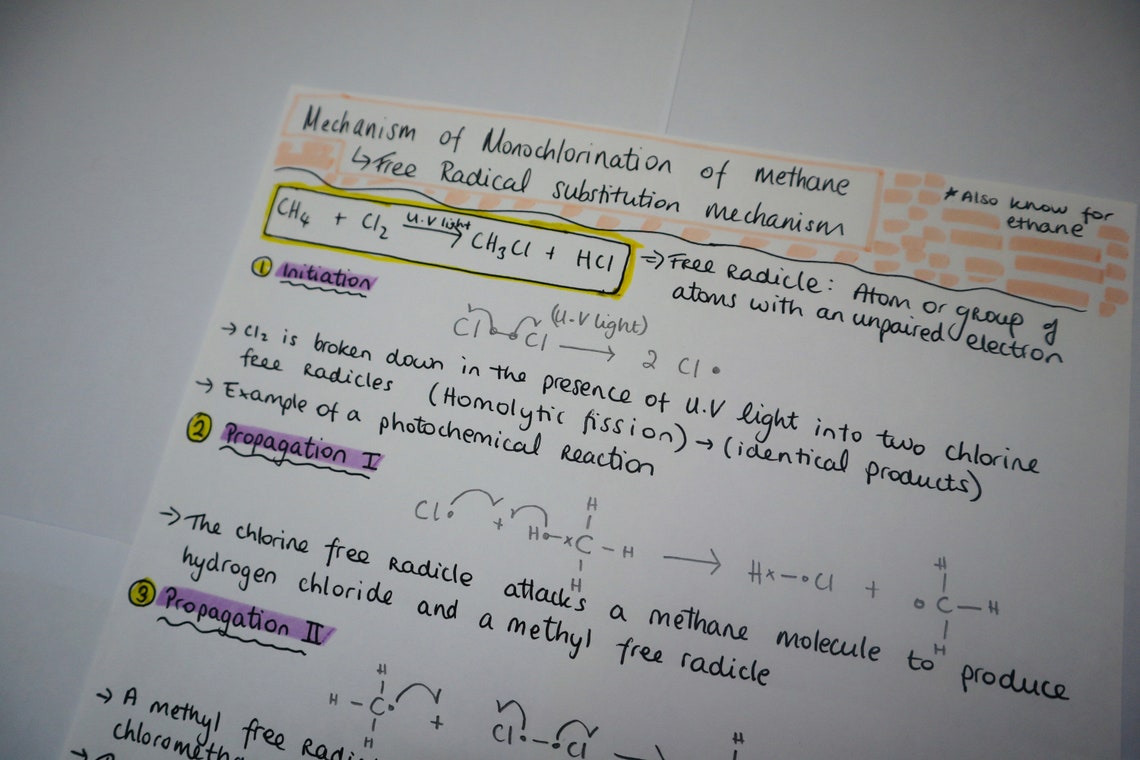 Mechanism of Monochlorination of methane
↳Free Radical substitution mechanism
* Also know for
ethane
CH₄ + Cl₂ U.V light → CH₃Cl + HCl
⇒ Free Radicle: Atom or group of
atoms with an unpaired electron
① Initiation
Cl Cl (U.V light) → 2 Cl •
→ Cl₂ is broken down in the presence of U.V light into two chlorine
free radicles (Homolytic fission) → (identical products)
→ Example of a photochemical Reaction
② Propagation I
H
Cl• + H•-×C - H → H×-•Cl + • C - H
H
H
H
→ The chlorine free radicle attacks a methane molecule to produce
hydrogen chloride and a methyl free radicle
③ Propagation II
H
H - C• + Cl•-•Cl →
H
H
→ A methyl free